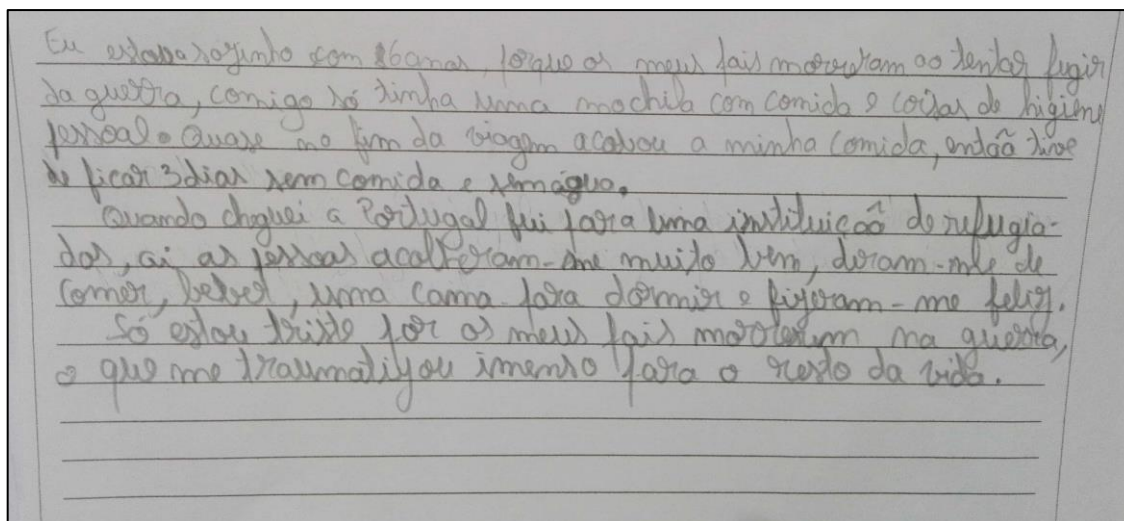 Eu estava sozinho com 16 anos, porque os meus pais morreram ao tentar fugir
da guerra, comigo só tinha uma mochila com comida e coisas de higiene
pessoal. Quase no fim da viagem acabou a minha comida, então tive
de ficar 3 dias sem comida e sem água.
Quando cheguei a Portugal fui para uma instituição de refugia-
dos, ai as pessoas acolheram-me muito bem, deram-me de
comer, beber, uma cama para dormir e fizeram-me feliz.
Só estou triste por os meus pais morrerem na guerra,
o que me traumatizou imenso para o resto da vida.